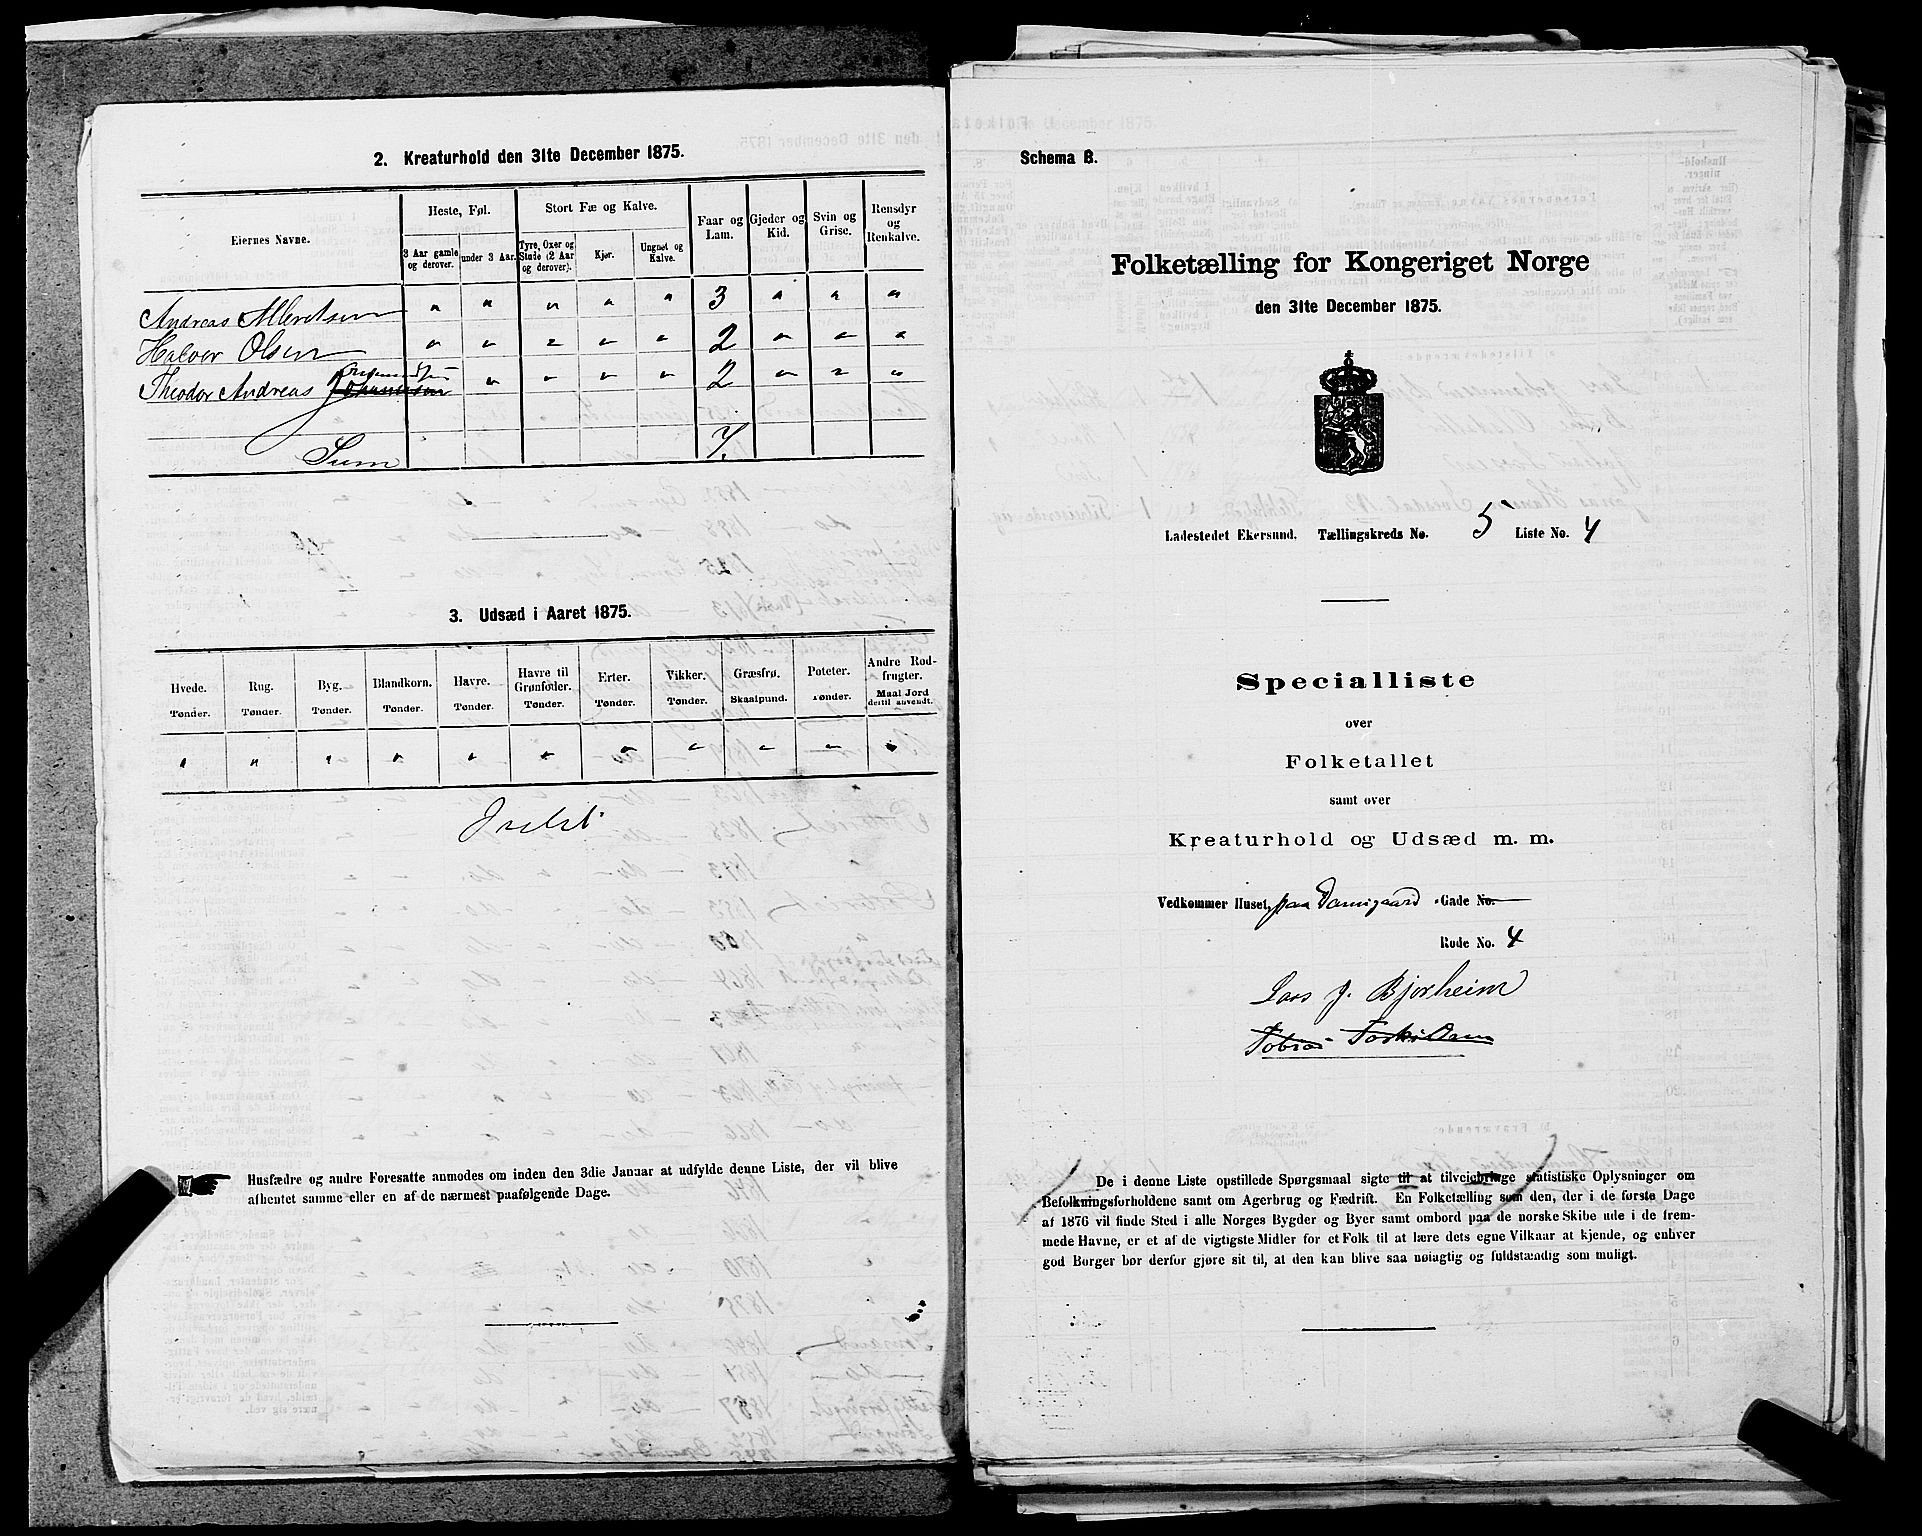 2. Kreaturhold den 31te December 1875.
Eiernes Navne.
Heste, Føl.
Stort Fæ og Kalve.
Faar og Lam.
Gjeder og Kid.
Svin og Grise.
Rensdyr og Renkalve.
3 Aar gamle og derover.
under 3 Aar.
Tyre, Oxer og Stude (2 Aar og derover).
Kjør.
Ungnøt og Kalve.
Andreas 3
Halvor Olsen 2
Theodor Andreas 2
Sum 7.
3. Udsæd i Aaret 1875.
Hvede. Rug. Byg. Blandkorn. Havre. Havre til Grønfoder. Erter. Vikker. Græsfrø. Poteter. Andre Rodfrugter.
Tønder. Tønder. Tønder. Tønder. Tønder. Tønder. Tønder. Tønder. Skaalpund. Tønder. Maal Jord dertil anvendt.
Husfædre og andre Foresatte anmodes om inden den 3die Januar at udfylde denne Liste, der vil blive
afhentet samme eller en af de nærmest paafølgende Dage.
Schema B.
Folketælling for Kongeriget Norge
den 31te December 1875.
Ladestedet Ekersund. Tællingskreds No. 5 Liste No. 4
Specialliste
over
Folketallet
samt over
Kreaturhold og Udsæd m. m.
Vedkommer Huset, paa Damsgaard Gade No.
Rode No. 4
Lars J. Bjorheim
Tobias
De i denne Liste opstillede Spørgsmaal sigte til at tilveiebringe statistiske Oplysninger om
Befolkningsforholdene samt om Agerbrug og Fædrift. En Folketælling som den, der i de første Dage
af 1876 vil finde Sted i alle Norges Bygder og Byer samt ombord paa de norske Skibe ude i de frem-
mede Havne, er et af de vigtigste Midler for et Folk til at lære dets egne Vilkaar at kjende, og enhver
god Borger bør derfor gjøre sit til, at den kan blive saa nøiagtig og fuldstændig som muligt.